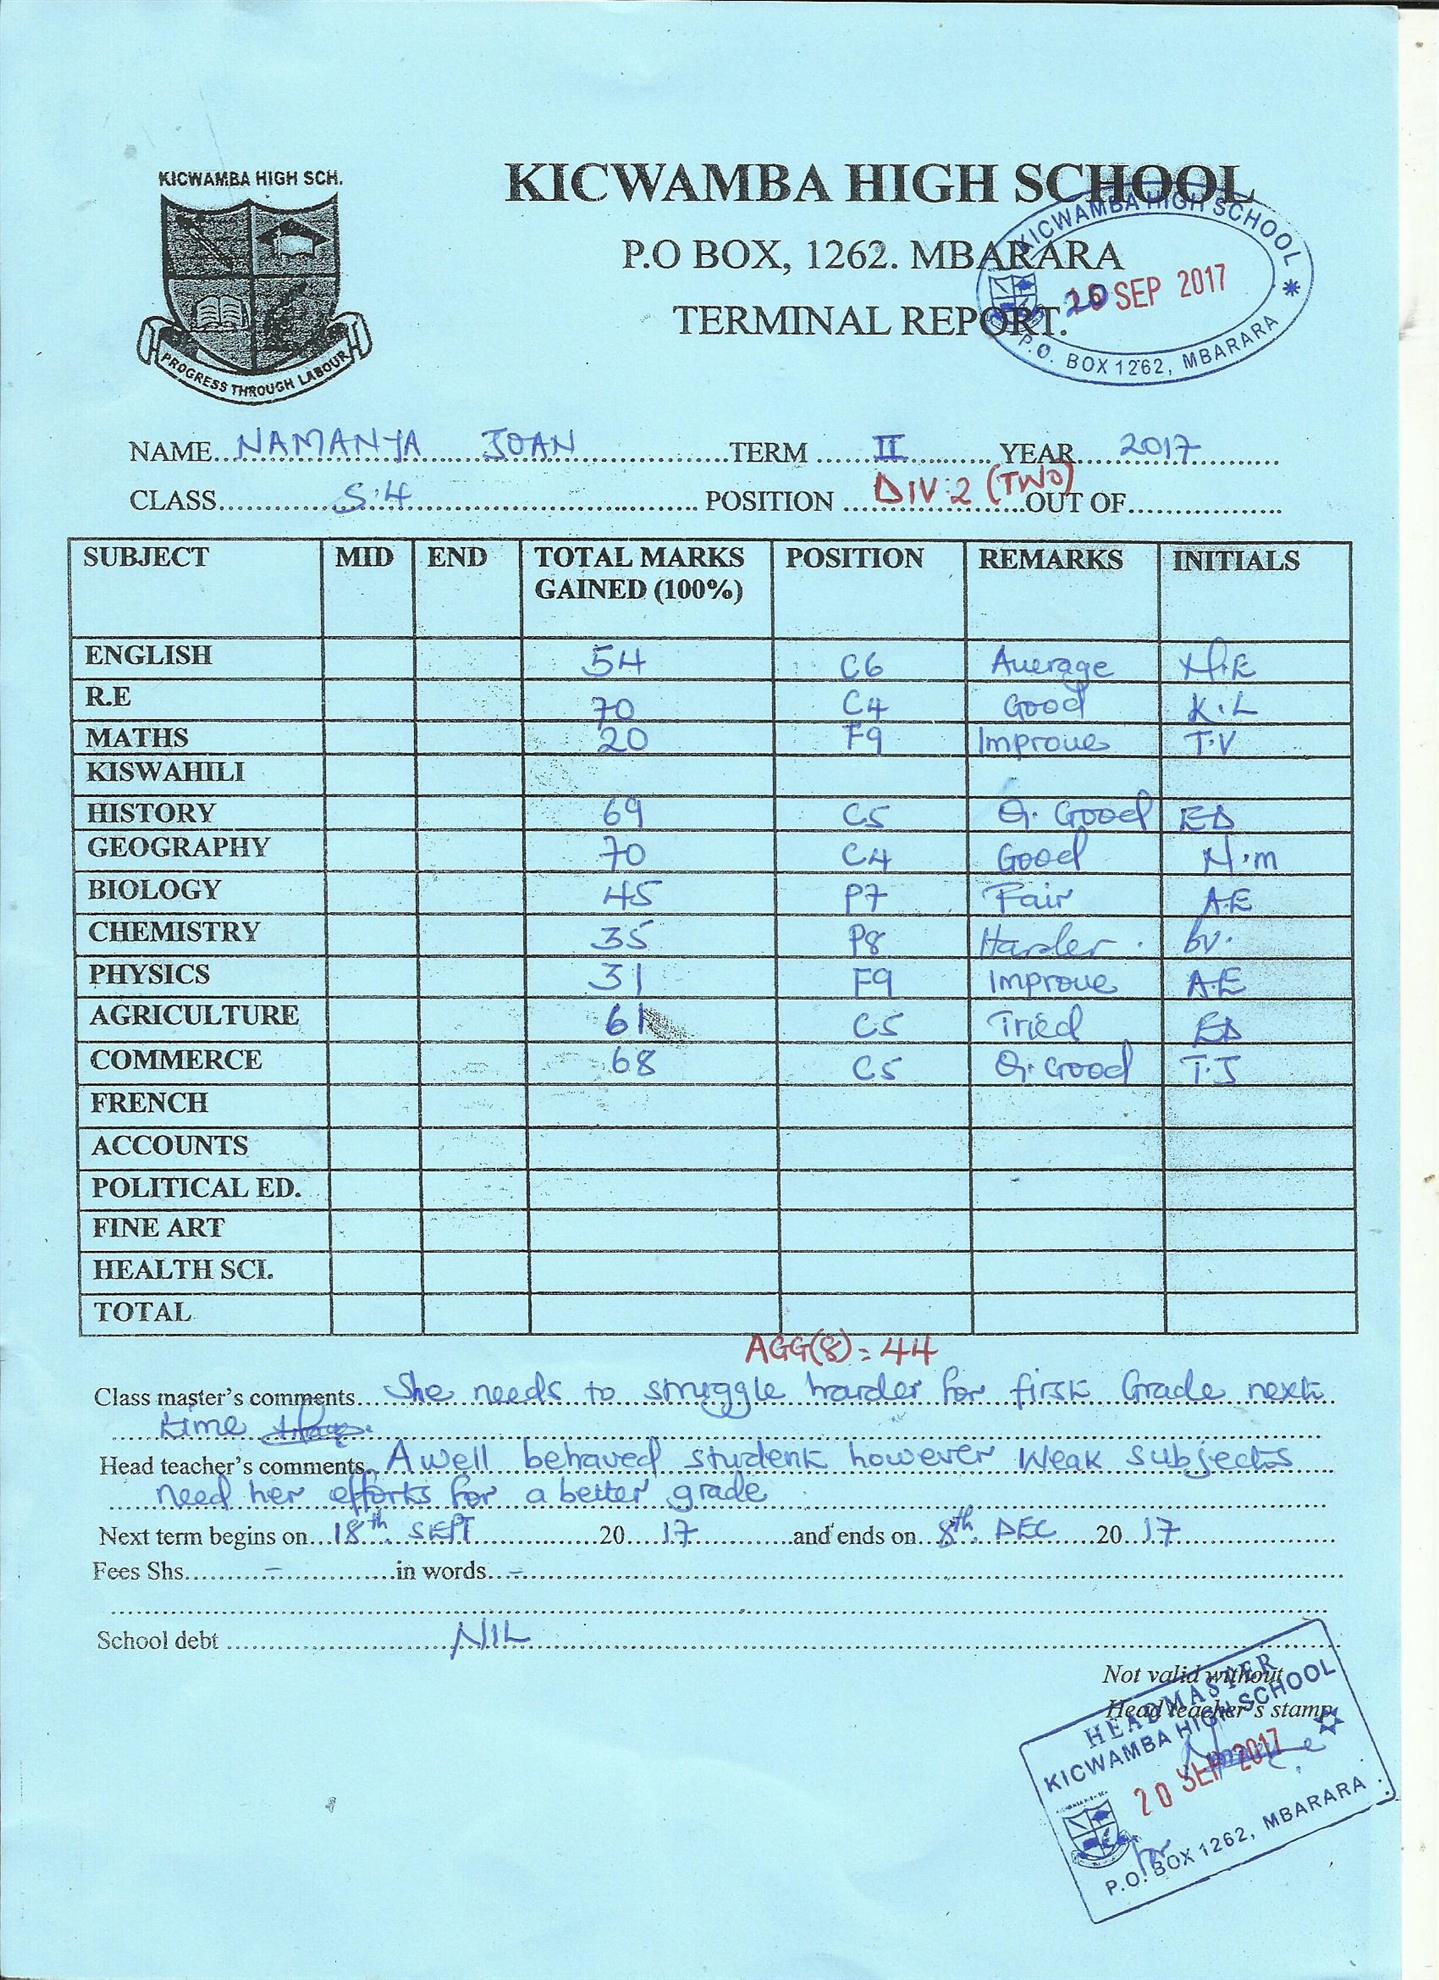 KICWAMBA HIGH SCH.
PROGRESS THROUGH LABOUR
KICWAMBA HIGH SCHOOL
P.O BOX, 1262. MBARARA
TERMINAL REPORT.
KICWAMBA HIGH SCHOOL
SEP 2017
P.O. BOX 1262, MBARARA
NAME NAMANYA JOAN TERM II YEAR 2017
CLASS S.4 POSITION DIV:2 (TWO) OUT OF
SUBJECT MID END TOTAL MARKS GAINED (100%) POSITION REMARKS INITIALS
ENGLISH 54 C6 Average M.E
R.E 70 C4 Good K.L
MATHS 20 F9 Improve T.V
KISWAHILI
HISTORY 69 C5 Q. Good ED
GEOGRAPHY 70 C4 Good N.m
BIOLOGY 45 P7 Fair A.E
CHEMISTRY 35 P8 Harder. bv.
PHYSICS 31 F9 Improve A.E
AGRICULTURE 61 C5 Tried ED
COMMERCE 68 C5 Q. Good T.J
FRENCH
ACCOUNTS
POLITICAL ED.
FINE ART
HEALTH SCI.
TOTAL
AGG(8) = 44
Class master's comments She needs to struggle harder for first Grade next
time
Head teacher's comments A well behaved student however weak subjects
need her efforts for a better grade
Next term begins on 18th SEPT 2017 and ends on 8th DEC 2017
Fees Shs - in words -
School debt NIL
Not valid without
Head teacher's stamp
HEADMASTER
KICWAMBA HIGH SCHOOL
20 SEP 2017
P.O. BOX 1262, MBARARA